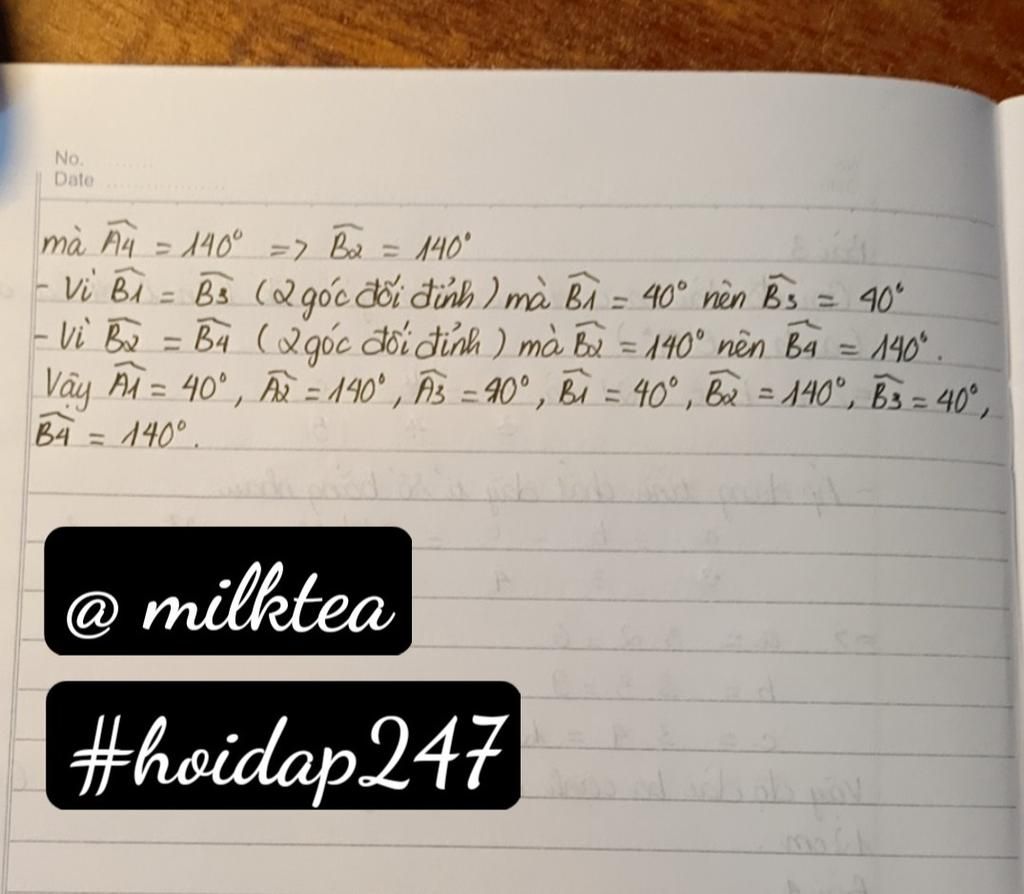 No.
Date
mà Â4 = 140° => B̂2 = 140°
- Vì B̂1 = B̂3 (2 góc đối đỉnh) mà B̂1 = 40° nên B̂3 = 40°
- Vì B̂2 = B̂4 (2 góc đối đỉnh) mà B̂2 = 140° nên B̂4 = 140°.
Vậy Â1 = 40°, Â2 = 140°, Â3 = 40°, B̂1 = 40°, B̂2 = 140°, B̂3 = 40°,
B̂4 = 140°.
@ milktea
#hoidap247